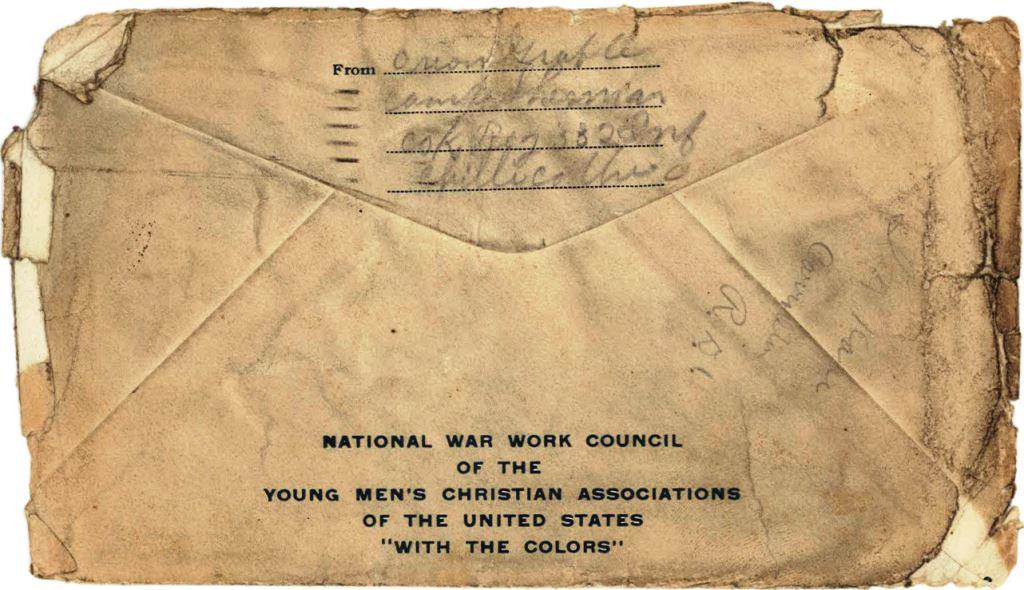 From
Camp Sherman
Reg 332 Inf
Chillicothe O
R. R. 1
NATIONAL WAR WORK COUNCIL
OF THE
YOUNG MEN'S CHRISTIAN ASSOCIATIONS
OF THE UNITED STATES
"WITH THE COLORS"